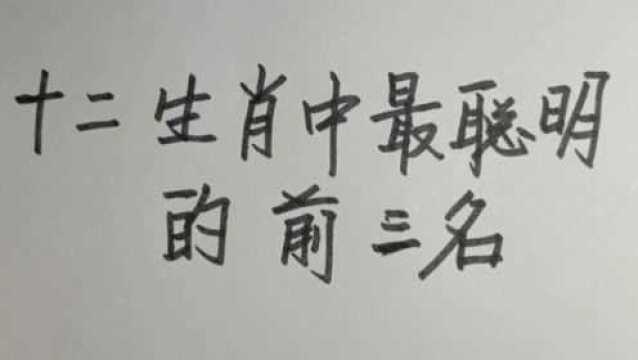 十二生肖中最聪明
的前三名